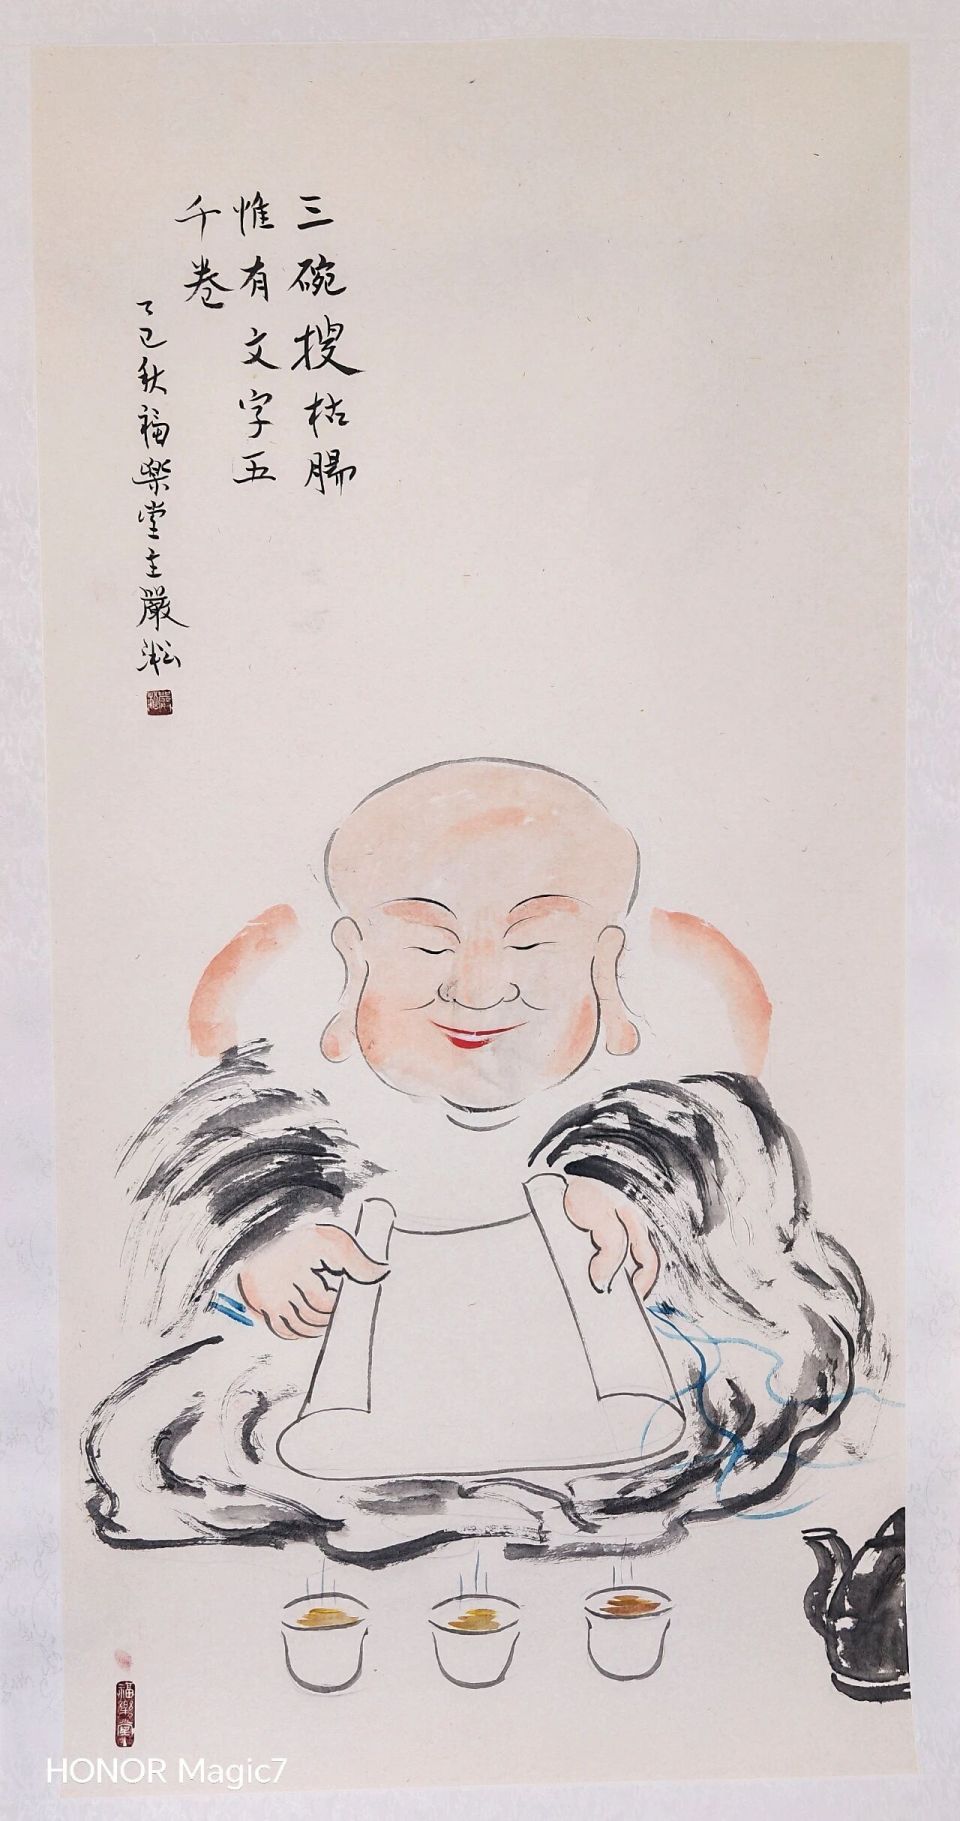 三碗搜枯腸
惟有文字五
千卷
乙巳秋福樂堂主嚴淞
福樂堂
HONOR Magic7